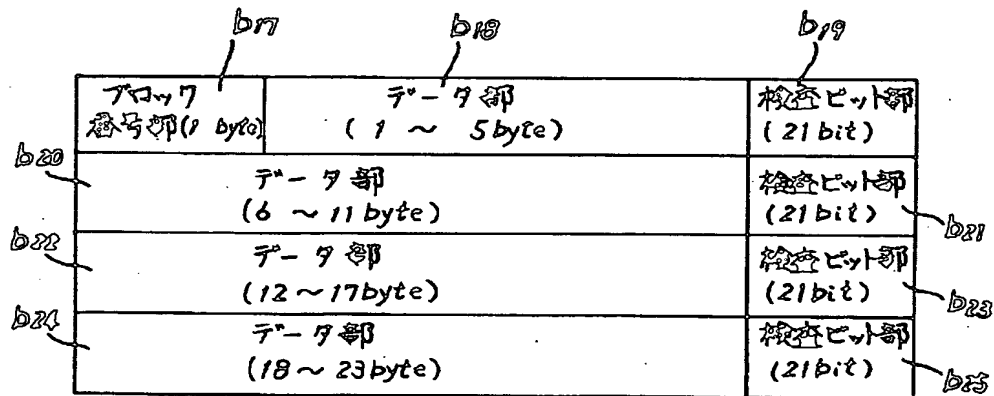 b17
b18
b19
ブロック
番号部(1 byte)
データ部
(1 ~ 5byte)
検査ビット部
(21bit)
b20
データ部
(6 ~ 11byte)
検査ビット部
(21bit)
b21
b22
データ部
(12~17byte)
検査ビット部
(21bit)
b23
b24
データ部
(18~23byte)
検査ビット部
(21bit)
b25